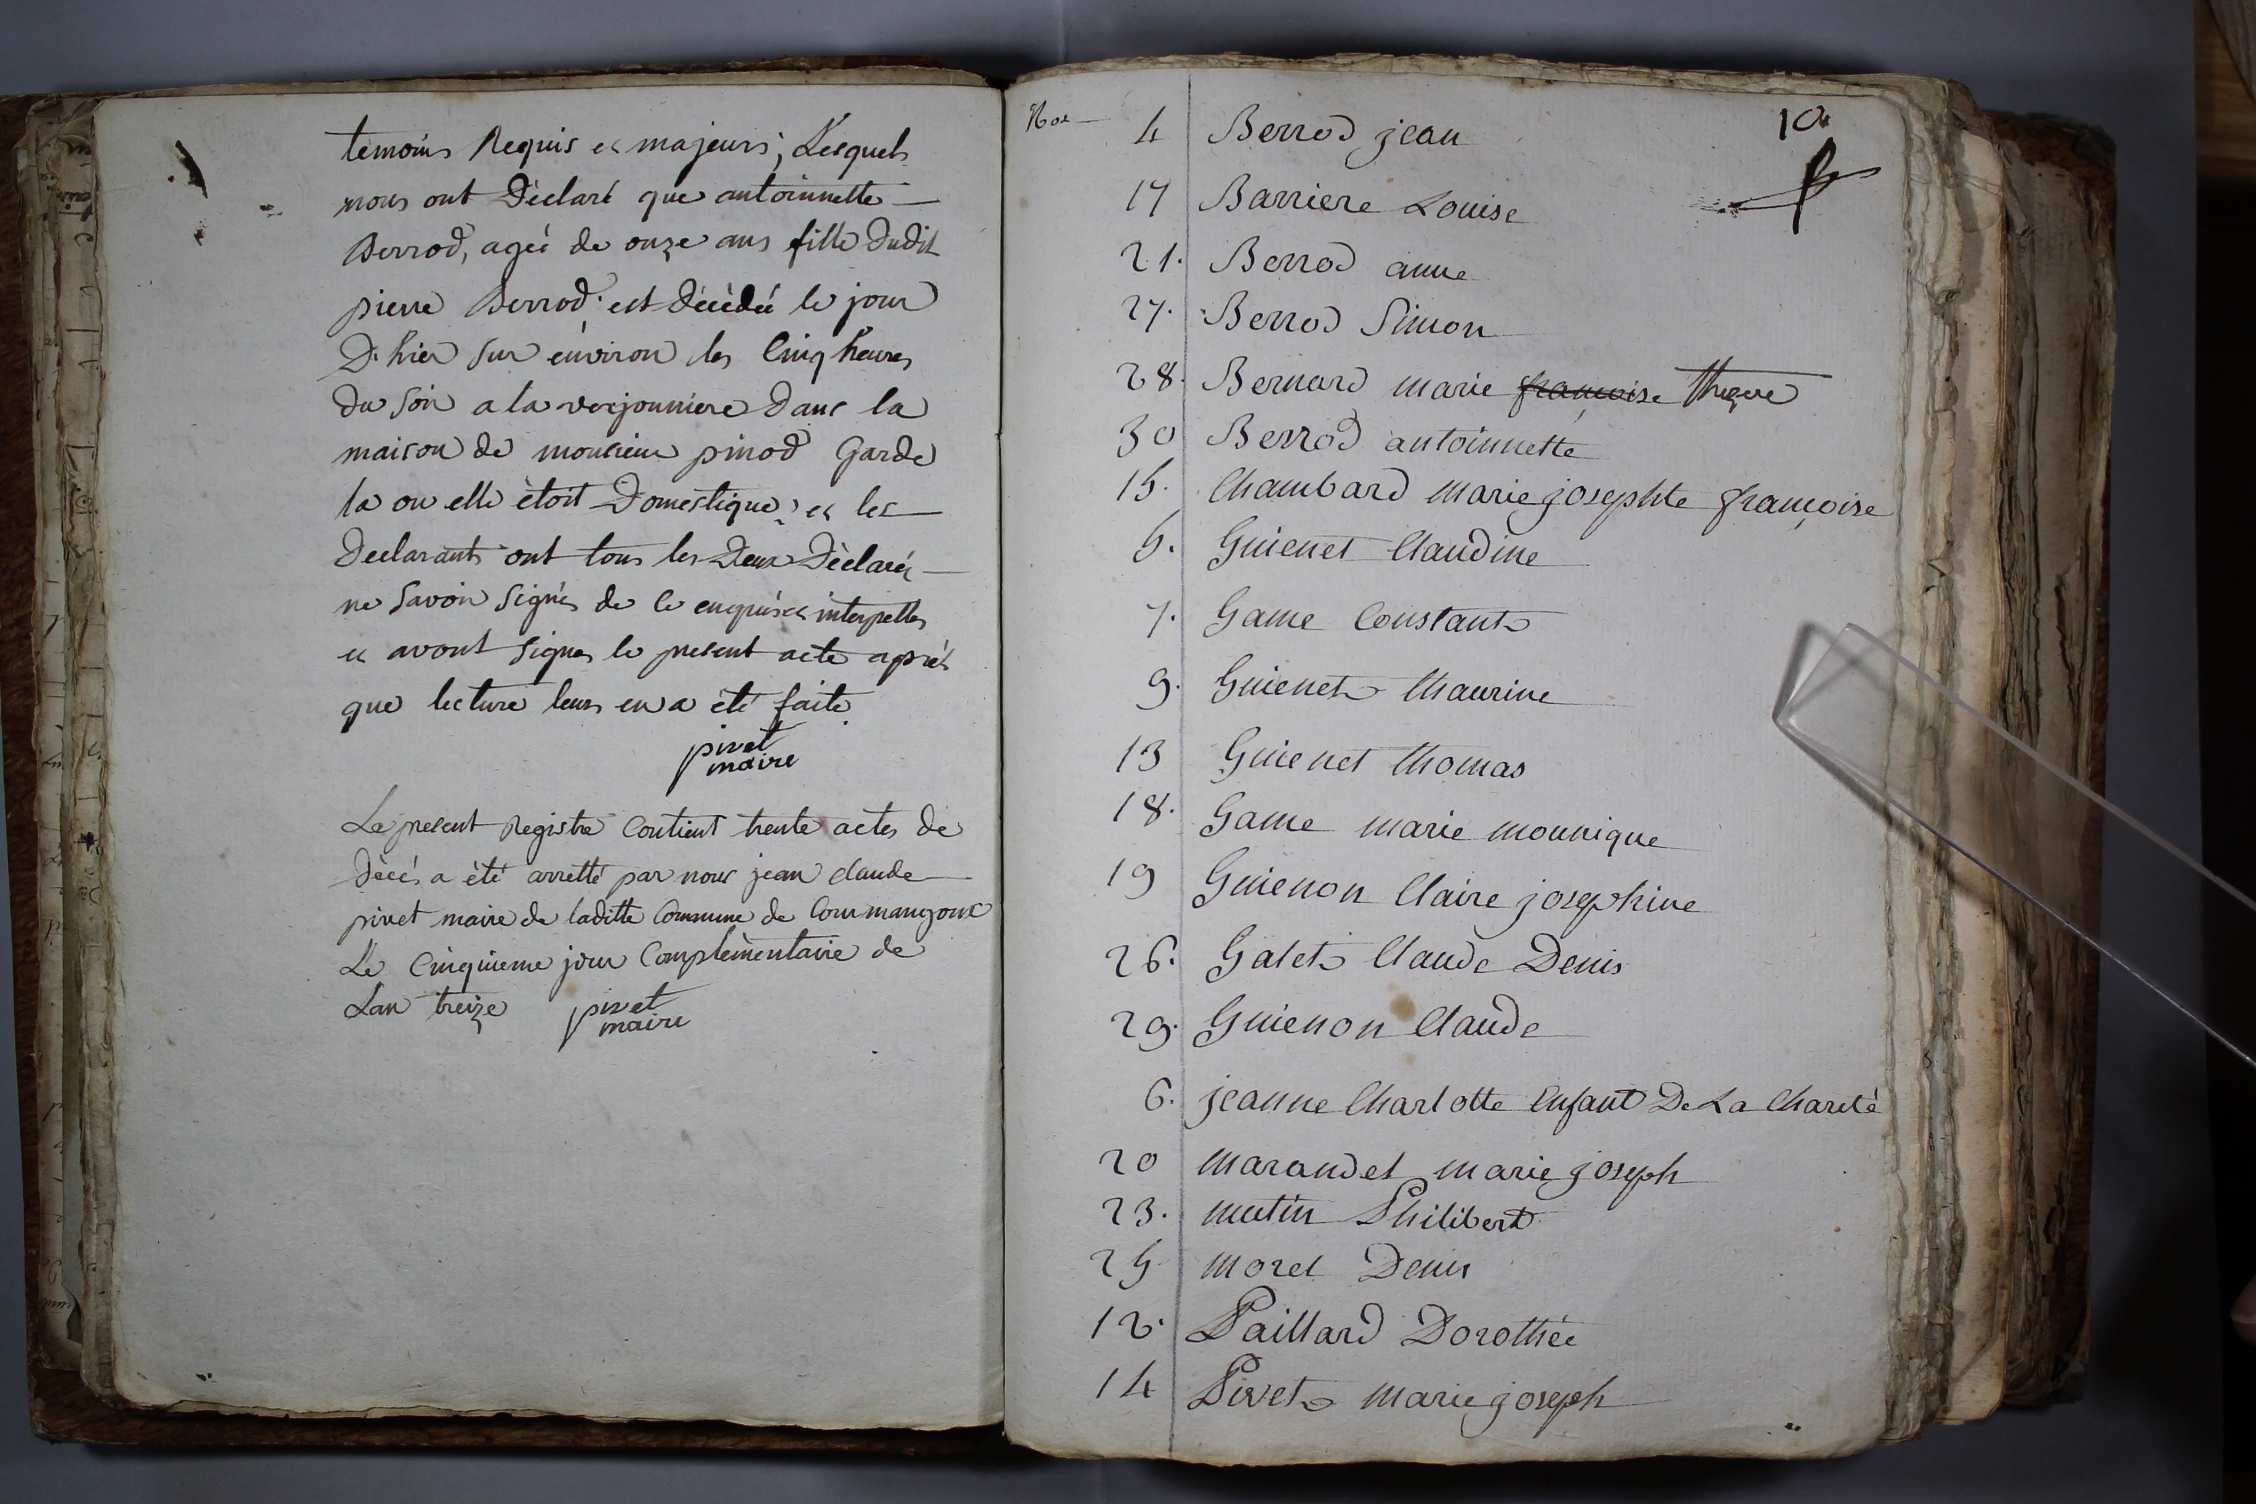 temoins Requis et majeurs; Lesquels
nous ont Déclaré que antoinnette
Berrod, agéé de onze ans fille dudit
pierre Berrod. est décédéé le jour
D'hier sur environ les Cinq heures
du soir a la verjonniere dans la
maison de monsieur pinod Garde
la ou elle étoit Domestique, et les
Declarants ont tous les Deux Déclarés
ne savoir signés de ce enquis et interpellés
et avont signés le present acte aprés
que lecture leurs en a été faite
pivet
maire
Le present Registre Contient trente actes de
Décés a été arretté par nous jean claude
pivet maire de laditte Commune de Courmangoux
Le Cinquieme jour Complémentaire de
Lan treize pivet
maire
10
Nos 4 Berrod jean
17 Barriere Louise
21. Berrod anne
27. Berrod Simon
28. Bernard marie françoise
30 Berrod antoinnette
15. Chambard marie josephte françoise
5. Guienet Claudine
7. Game Constant
9. Guienet Thaurine
13 Guienet thomas
18. Game marie mounique
19 Guienon Claire josephine
26. Galet Claude Denis
29. Guienon Claude
6. jeanne Charlotte Enfant De La Charité
20 marandet marie joseph
23. mutin Philibert
25 morel Denis
12. Paillard Dorothée
14 Pivet marie joseph